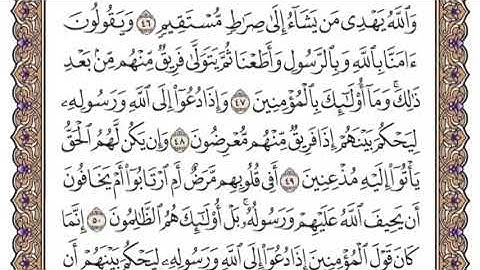 وَاللَّهُ يَهْدِي مَن يَشَاءُ إِلَىٰ صِرَاطٍ مُّسْتَقِيمٍ ٤٦ وَيَقُولُونَ
ءَامَنَّا بِاللَّهِ وَبِالرَّسُولِ وَأَطَعْنَا ثُمَّ يَتَوَلَّىٰ فَرِيقٌ مِّنْهُم مِّنۢ بَعْدِ
ذَٰلِكَ ۚ وَمَا أُولَٰئِكَ بِالْمُؤْمِنِينَ ٤٧ وَإِذَا دُعُوا إِلَى اللَّهِ وَرَسُولِهِ
لِيَحْكُمَ بَيْنَهُمْ إِذَا فَرِيقٌ مِّنْهُم مُّعْرِضُونَ ٤٨ وَإِن يَكُن لَّهُمُ الْحَقُّ
يَأْتُوا إِلَيْهِ مُذْعِنِينَ ٤٩ أَفِي قُلُوبِهِم مَّرَضٌ أَمِ ارْتَابُوا أَمْ يَخَافُونَ
أَن يَحِيفَ اللَّهُ عَلَيْهِمْ وَرَسُولُهُ ۚ بَلْ أُولَٰئِكَ هُمُ الظَّالِمُونَ ٥٠ إِنَّمَا
كَانَ قَوْلَ الْمُؤْمِنِينَ إِذَا دُعُوا إِلَى اللَّهِ وَرَسُولِهِ لِيَحْكُمَ بَيْنَهُمْ أَن